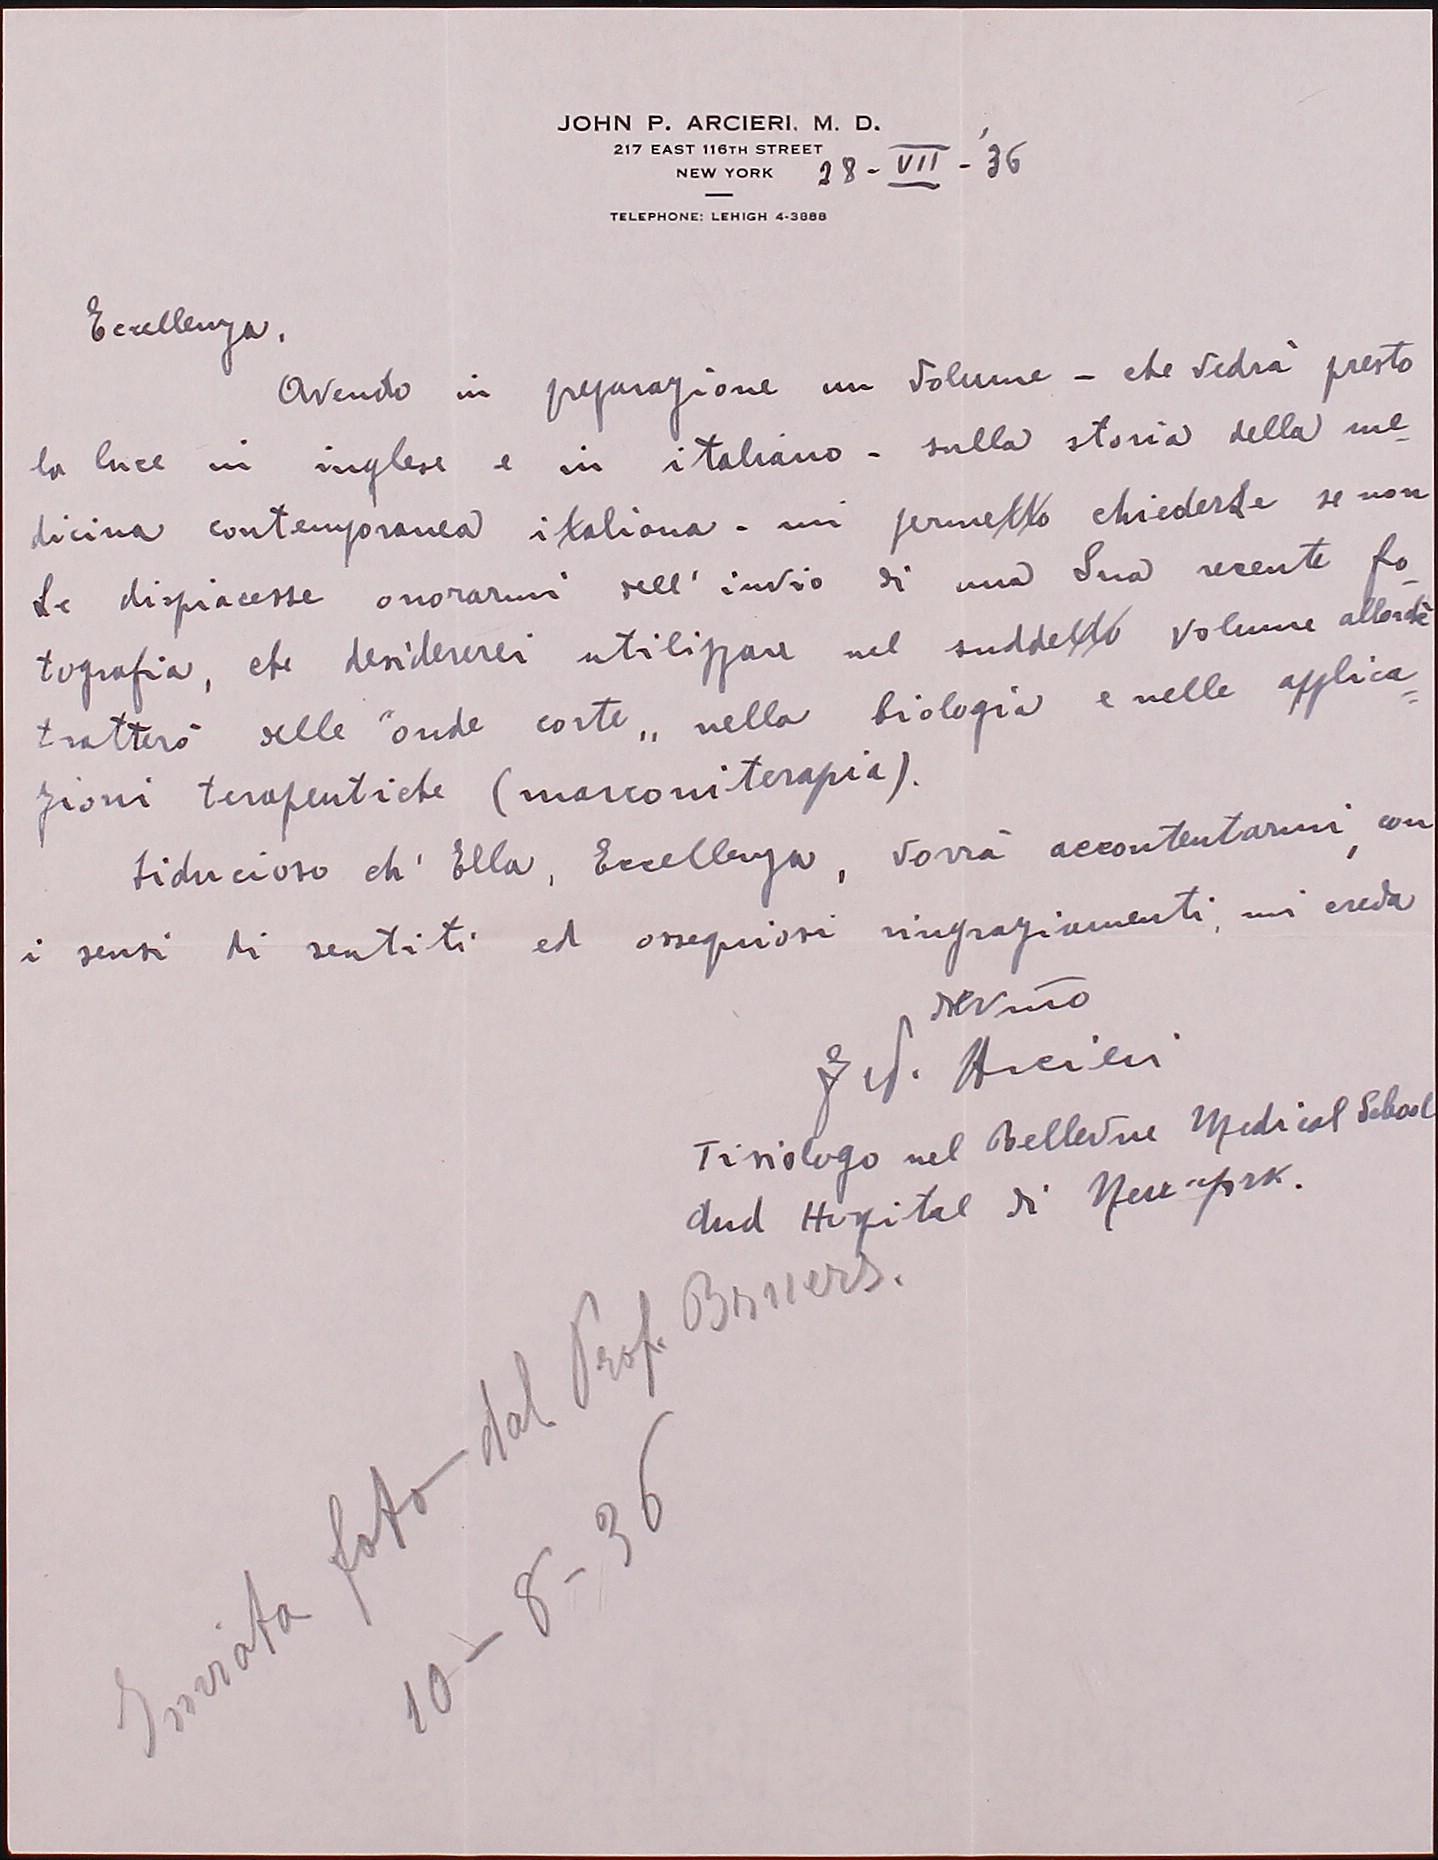 JOHN P. ARCIERI, M. D.
217 EAST 116TH STREET
NEW YORK 28-VII-'36
TELEPHONE: LEHIGH 4-3888
Eccellenza,
Avendo in preparazione un volume - che vedrà presto
la luce in inglese e in italiano - sulla storia della me-
dicina contemporanea italiana - mi permetto chiederLe se non
Le dispiacesse onorarmi dell'invio di una Sua recente fo-
tografia, che desidererei utilizzare nel suddetto volume allorchè
tratterò delle "onde corte„ nella biologia e nelle applica-
zioni terapeutiche (marconiterapia).
Fiducioso ch'Ella, Eccellenza, vorrà accontentarmi, con
i sensi di sentiti ed ossequiosi ringraziamenti, mi creda
devmo
J. P. Arcieri
Tisiologo nel Bellevue Medical School
And Hospital di New-York.
Inviata foto dal Prof.
10-8-36